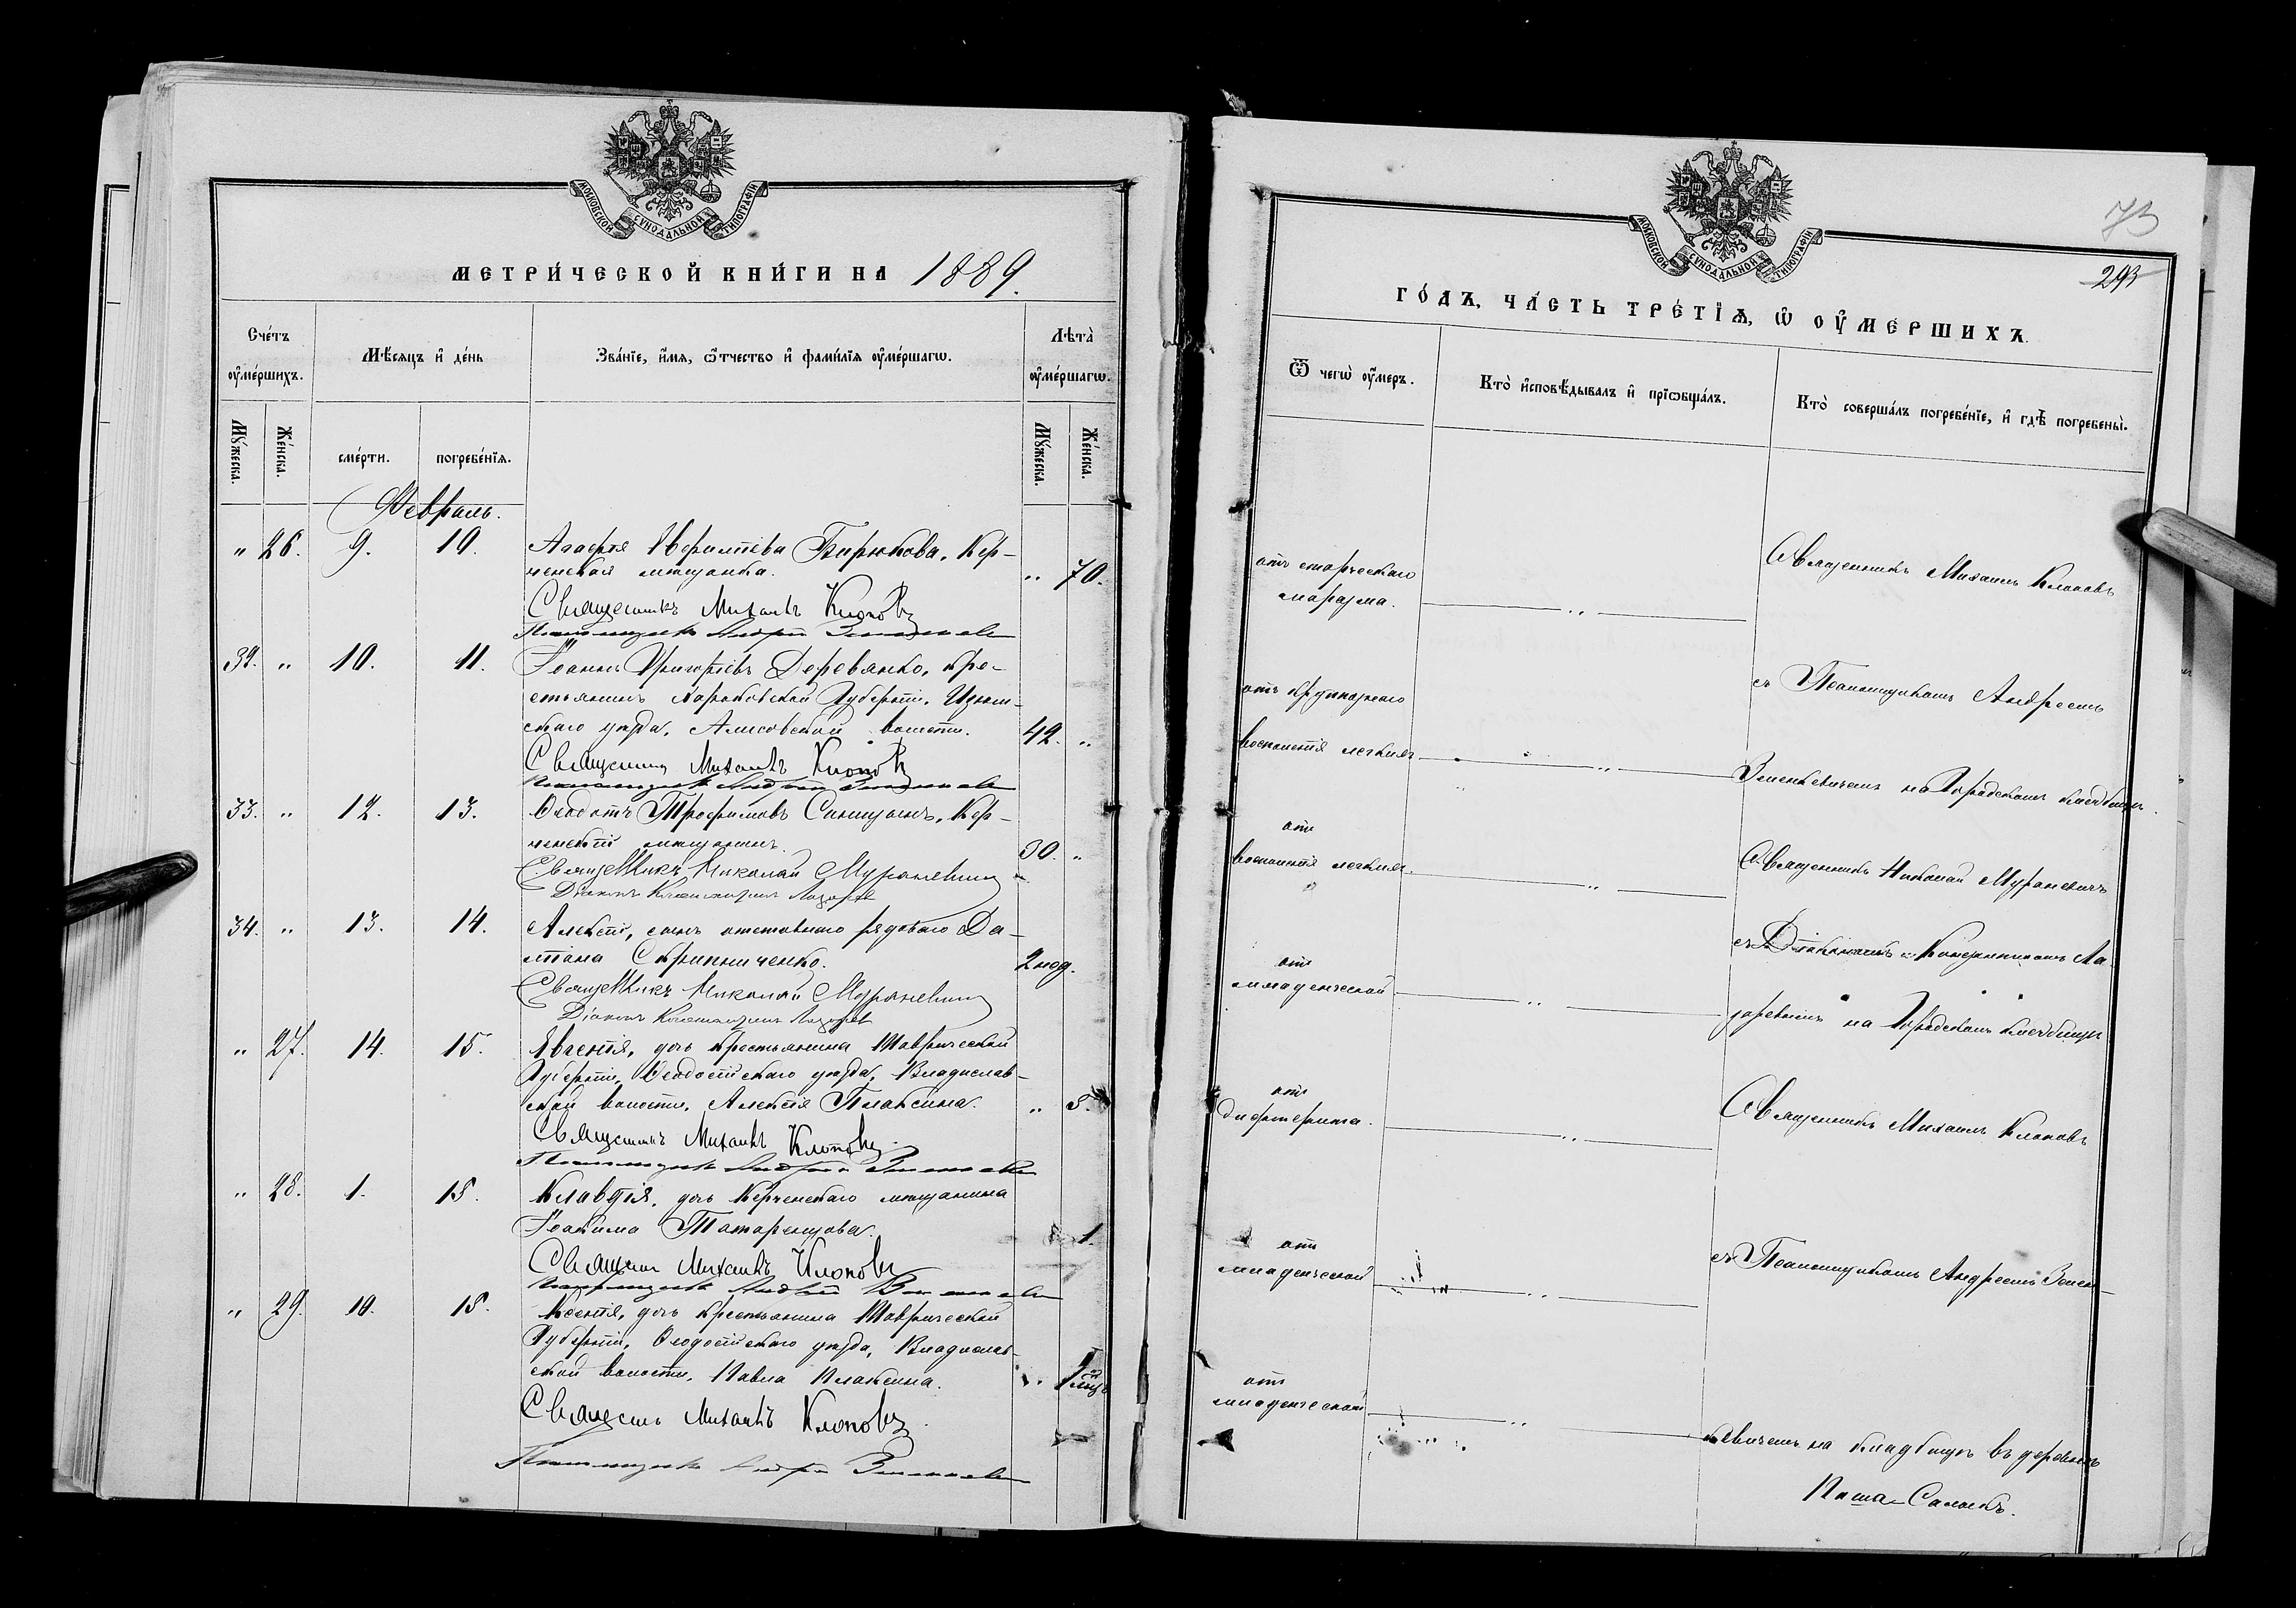 МОСКОВСКОЙ СѴНОДАЛЬНОЙ ТИПОГРАФІИ
МЕТРИ́ЧЕСКОЙ КНИ́ГИ НА 1889.
Сче́тъ оу҆ме́ршихъ.
Мѣ́сяцъ и҆ де́нь
Зва́нїе, и҆́мя, ѻ҆́тчество и҆ фами́лїя оу҆ме́ршагѡ.
Лѣта̀ оу҆ме́ршагѡ.
Мꙋ́жеска.
Же́нска.
сме́рти.
погребе́нїя.
Мꙋ́жеска.
Же́нска.
Февраль.
" 26. 9. 10. Агафія Бирюкова, Кер-
ченская мѣщанка. " 70.
Священникъ Михаилъ Клоповъ
Псаломщикъ Андрей
32. " 10. 11. Іоаннъ Григоріевъ Деревянко, кре-
стьянинъ Харьковской Губерніи, Изюм-
скаго уѣзда, волости. 42. "
Священникъ Михаилъ Клоповъ
Псаломщикъ Андрей
33. " 12. 13. Ѳеодотъ Трофимовъ Кер-
ченскій мѣщанинъ. 30. "
Священникъ Николай Мураневичъ
Діаконъ Лазарев
34. " 13. 14. Алексій, сынъ отставнаго рядоваго Да-
Скрипниченко. 2 нед.
Священникъ Николай Мураневичъ
Діаконъ Лазарев
" 27. 14. 15. Евгенія, дочь крестьянина Таврической
Губерніи, Ѳеодосійскаго уѣзда, Владислав-
ской волости, Алексія Плаксина. " 5.
Священникъ Михаилъ Клоповъ
Псаломщикъ Андрей
" 28. 1. 15. Клавдія, дочь Керченскаго мѣщанина
Іоакима Татаренцова. 1.
Священникъ Михаилъ Клоповъ
Псаломщикъ Андрей
" 29. 10. 15. Ксенія, дочь крестьянина Таврической
Губерніи, Ѳеодосійскаго уѣзда, Владислав-
ской волости, Павла Плаксина. "
Священникъ Михаилъ Клоповъ
Псаломщикъ Андрей
МОСКОВСКОЙ СѴНОДАЛЬНОЙ ТИПОГРАФІИ
73
293
ГО́ДЪ, ЧА́СТЬ ТРЕ́ТЇѦ, Ѡ҆ ОУ҆МЕ́РШИХЪ.
Ѿ чегѡ̀ оу҆́меръ.
Кто̀ и҆сповѣ́дывалъ и҆ прїѡбща́лъ.
Кто̀ соверша́лъ погребе́нїе, и҆ гдѣ̀ погребены̀.
отъ старческаго
маразма. "
Священникъ Михаилъ Клоповъ
отъ крупознаго
съ Псаломщикомъ Андреемъ
воспаленія легкихъ "
Зенькевичемъ на Городскомъ кладбищѣ.
отъ
воспаленія легкихъ "
Священникъ Николай Мураневичъ
отъ
младенческой "
съ Діакономъ Ла-
заревымъ на Городскомъ кладбищѣ
отъ
дифтерита. "
Священникъ Михаилъ Клоповъ
отъ
младенческой "
съ Псаломщикомъ Андреемъ Зень-
отъ
младенческой "
кевичемъ на кладбищѣ въ деревнѣ
Паша-Салынь.